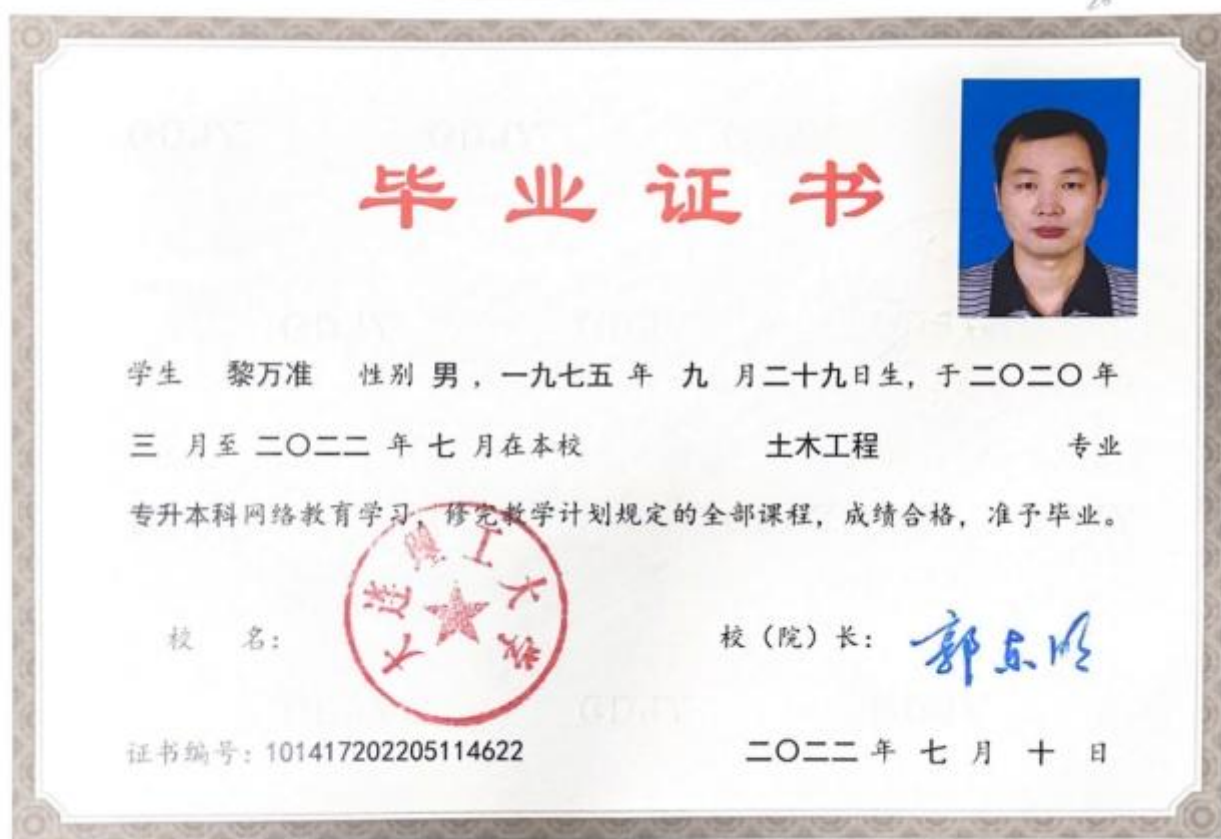 毕业证书
学生 黎万准 性别 男，一九七五 年 九 月二十九日生，于二〇二〇 年
三 月至 二〇二二 年 七 月在本校 土木工程 专业
专升本科网络教育学习，修完教学计划规定的全部课程，成绩合格，准予毕业。
大连理工大学
校 名：
校（院）长：郭东明
证书编号：101417202205114622
二〇二二 年 七 月 十 日